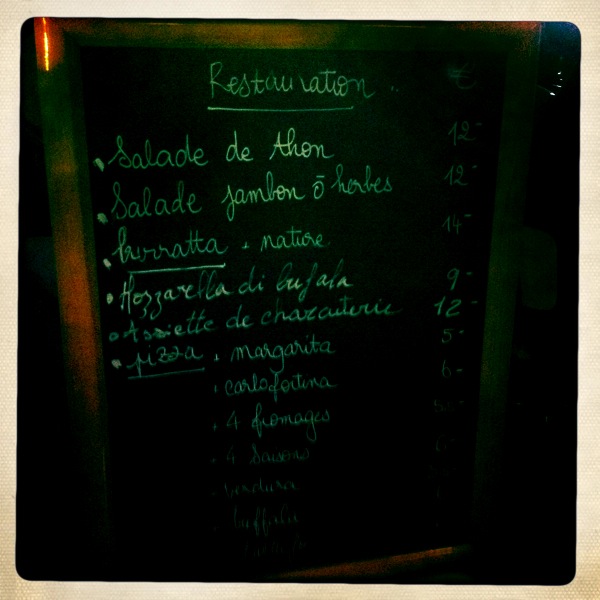 Restauration .. €
• Salade de thon 12-
• Salade jambon ō herbes 12-
• burratta • nature 14-
• Mozzarella di bufala 9-
• Assiette de charcuterie 12-
• pizza • margarita 5-
• carlofortina 6-
• 4 fromages
• 4 Saisons
• verdura
• buffala